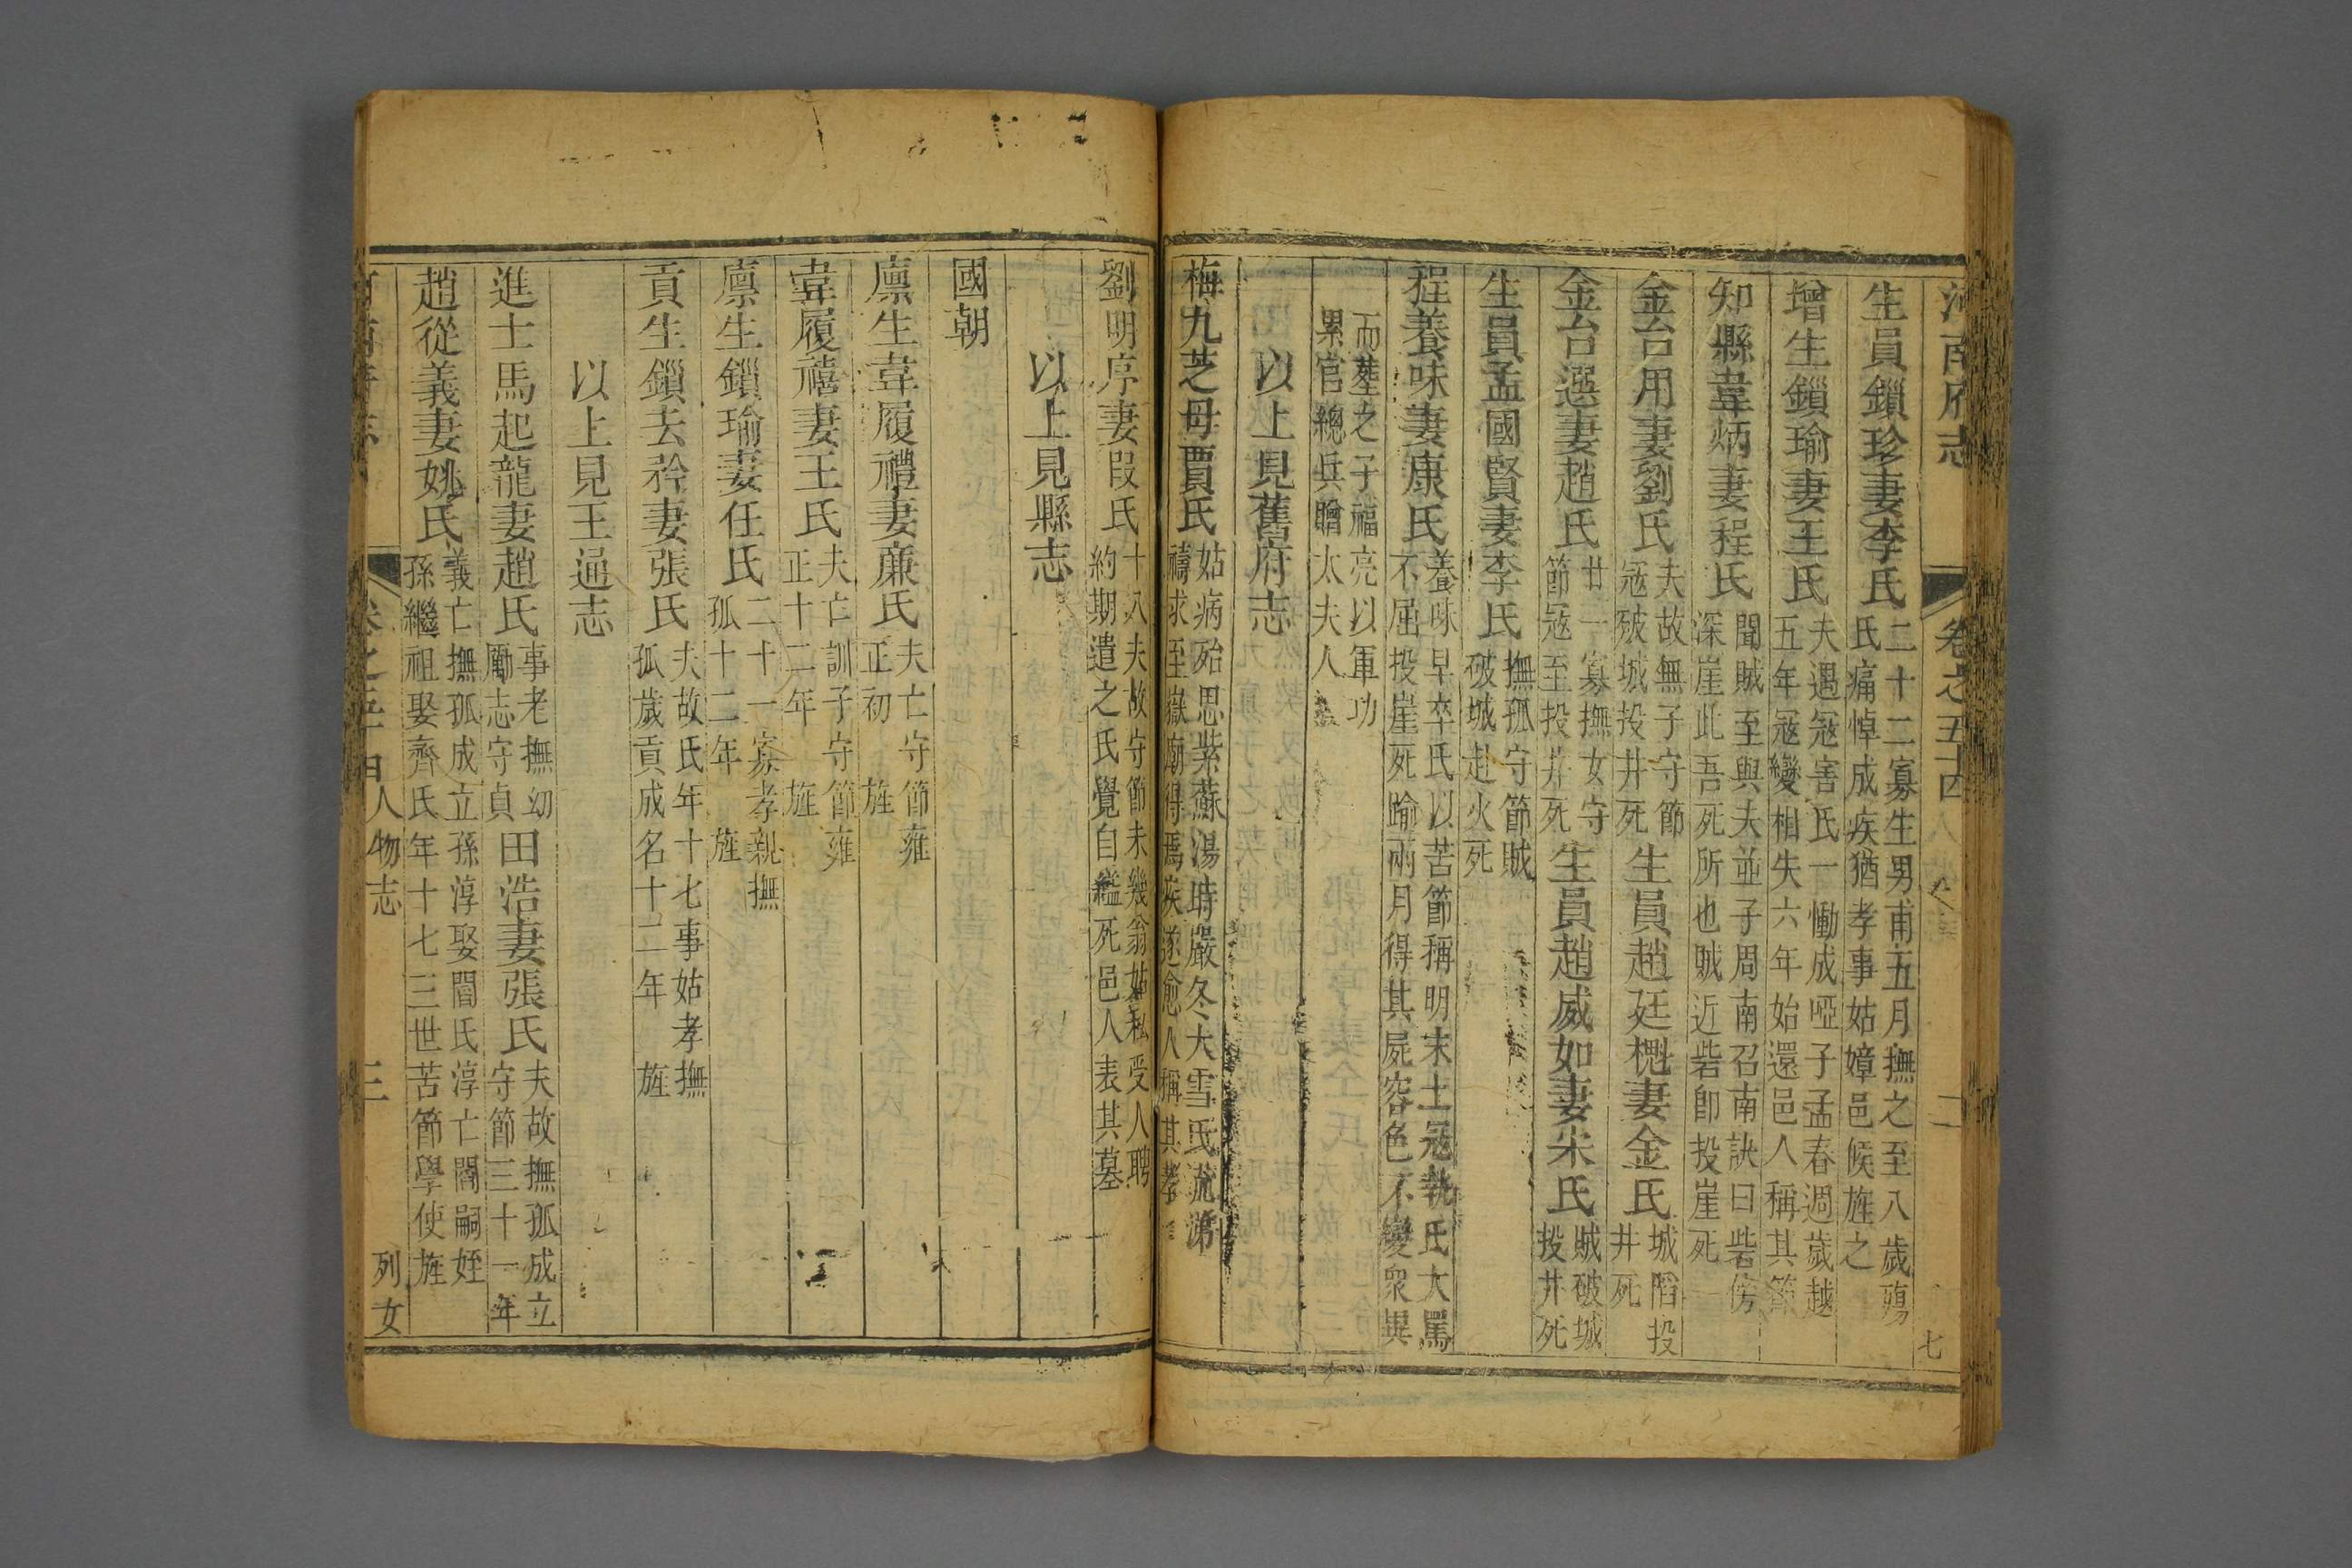 河南府志 卷之五十四 二 七
生員鎖珍妻李氏二十二寡生男甫五月撫之至八歲殤
氏痛悼成疾猶孝事姑嫜邑候旌之
增生鎖瑜妻王氏夫遇冦害氏一慟成啞子孟春週歲越
五年冦變相失六年始還邑人稱其節
知縣韋炳妻程氏聞賊至與夫並子周南召南訣曰砦傍
深崖此吾死所也賊近砦卽投崖死
金台用妻劉氏夫故無子守節
冦破城投井死生員趙廷櫆妻金氏城陷投
井死
金台選妻趙氏廿一寡撫女守
節冦至投井死生員趙威如妻米氏賊破城
投井死
生員孟國賢妻李氏撫孤守節賊
破城赴火死
程養味妻康氏養味早卒氏以苦節稱明末土冦執氏大罵
不屈投崖死踰兩月得其屍容色不變衆異
而塟之子福亮以軍功
累官總兵贈太夫人
以上見舊府志
梅九芝母賈氏姑病殆思紫蘇湯時嚴冬大雪氏流涕
禱求至嶽廟得焉疾遂愈人稱其孝
劉明序妻叚氏十八夫故守節未幾翁姑私受人聘
約期遣之氏覺自縊死邑人表其墓
以上見縣志
國朝
廪生韋履禮妻亷氏夫亡守節雍
正初 旌
韋履禧妻王氏夫亡訓子守節雍
正十二年 旌
廪生鎖瑜妻任氏二十一寡孝親撫
孤十二年 旌
貢生鎖去矜妻張氏夫故氏年十七事姑孝撫
孤歲貢成名十二年 旌
以上見王通志
進士馬起龍妻趙氏事老撫幼
勵志守貞田浩妻張氏夫故撫孤成立
守節三十一年
趙從義妻姚氏義亡撫孤成立孫淳娶閻氏淳亡閻嗣姪
孫繼祖娶齊氏年十七三世苦節學使旌
人物志 三 列女